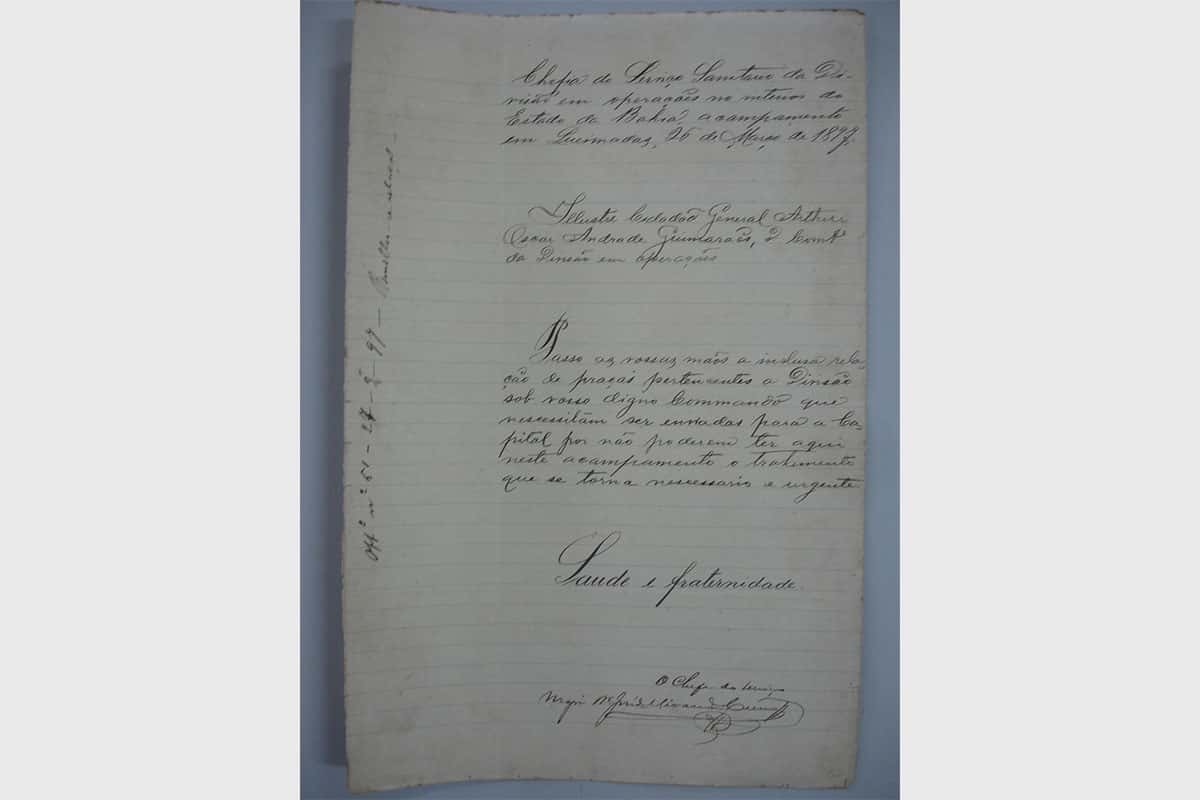 Chefia do Serviço Sanitario da Di-
visão em operações no interior do
Estado da Bahia, acampamento
em Queimadas, 26 de Março de 1897.
Illustre Cidadão General Arthur
Oscar Andrade Guimarães, D Comte
da Divisão em operações
Passo as vossas mãos a inclusa rela-
ção de praças pertencentes a Divisão
sob vosso digno Commando que
nescessitam ser enviadas para a Ca-
pital por não poderem ter aqui
neste acampamento o tratamento
que se torna nescessario e urgente
Saude e fraternidade.
O Chefe do serviço
Offº nº 51 - 27 - 3 - 97 -